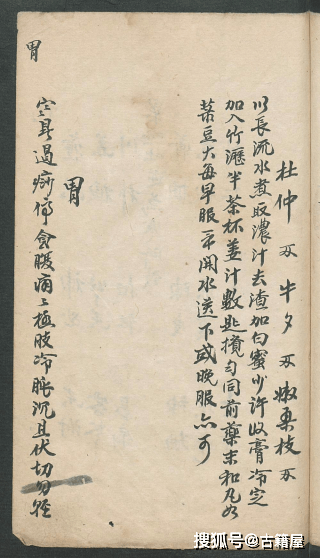 杜仲 牛夕 嫩桑枝
以長流水煮取濃汁去渣加白蜜少許收膏冷定
加入竹瀝半茶杯姜汁數匙攪勻同前藥末和丸如
菉豆大每早服開水送下或晚服亦可
胃
過痧停食腹痛之極肢冷脈沉且伏切勿輕
胃
搜狐号@古籍屋